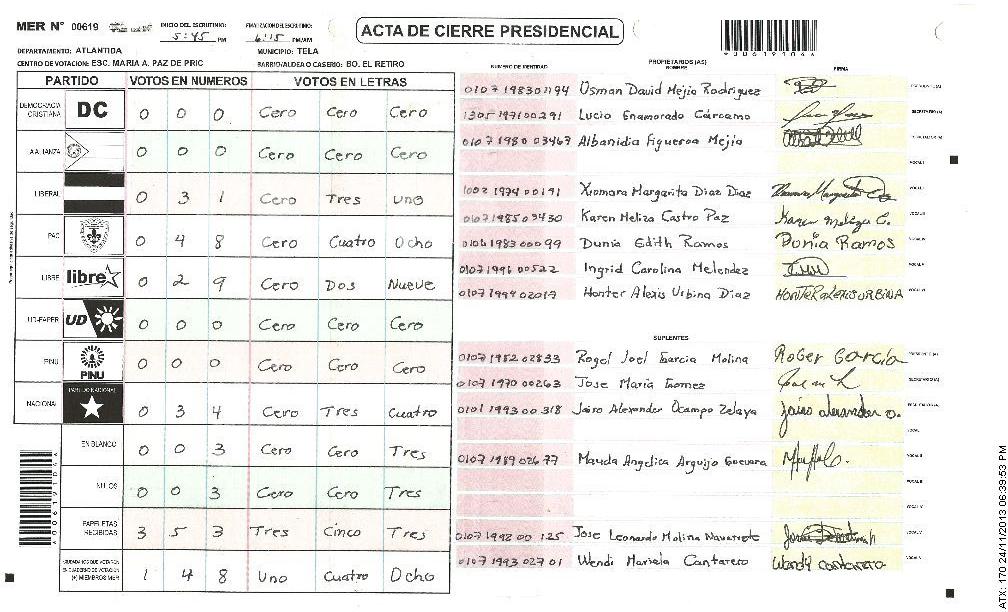 MER N° 00619 INICIO DEL ESCRUTINIO: 5:45 PM FINALIZACION DEL ESCRUTINIO: 6:15 PM/AM
ACTA DE CIERRE PRESIDENCIAL
DEPARTAMENTO: ATLANTIDA MUNICIPIO: TELA
CENTRO DE VOTACION: ESC. MARIA A. PAZ DE PRIC BARRIO/ALDEA O CASERIO: BO. EL RETIRO
PARTIDO VOTOS EN NUMEROS VOTOS EN LETRAS
DEMOCRACIA CRISTIANA DC 0 0 0 Cero Cero Cero
0 0 0 Cero Cero Cero
LIBERAL 0 3 1 Cero Tres Uno
PAC 0 4 8 Cero Cuatro Ocho
LIBRE libre 0 2 9 Cero Dos Nueve
UD-FAPER UD 0 0 0 Cero Cero Cero
PINU PINU 0 0 0 Cero Cero Cero
NACIONAL PARTIDO NACIONAL 0 3 4 Cero Tres Cuatro
EN BLANCO 0 0 3 Cero Cero Tres
NULOS 0 0 3 Cero Cero Tres
PAPELETAS RECIBIDAS 3 5 3 Tres Cinco Tres
CIUDADANOS QUE VOTARON EN CUADERNO DE VOTACION (+) MIEMBROS MER 1 4 8 Uno Cuatro Ocho
NUMERO DE IDENTIDAD PROPIETARIOS (AS) NOMBRE FIRMA
Osman David Mejia Rodriguez
Lucio Enamorado Cárcamo
0107 1980 03469 Albanidia Figueroa Mejia
1002 1974 00191 Xiomara Margarita Diaz Dias
0107 1985 03430 Karen Meliza Castro Paz
Dunia Edith Ramos Dunia Ramos
Ingrid Carolina Melendez
0107 1994 02017 Honter Alexis Urbina Diaz HONTER ALEXIS URBINA
SUPLENTES
0107 1982 02833 Rogel Joel Garcia Molina RoGer Garcia
0107 1970 00263 Jose Maria Gomez
0101 1993 00318 Jairo Alexander Ocampo Zelaya
0107 1989 02677 Mayda Angelica Arguijo Guevara
0107 1992 00 125 Jose Leonardo Molina Navarrete
0107 1993 027 01 Wendi Mariela Cantarero Wendy cantarero
ATX: 170 24/11/2013 06:39:53 PM